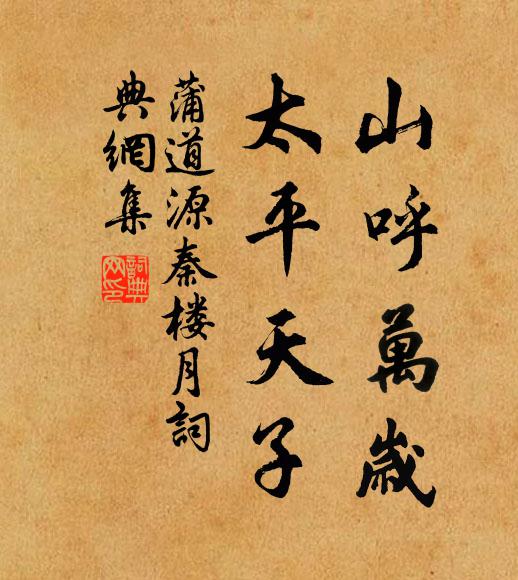 山呼萬歲
太平天子
蒲道源秦楼月詞
典網集
詞典網印